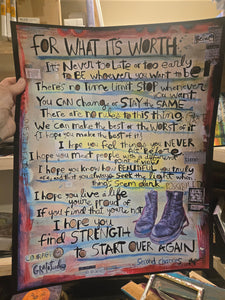 FOR WHAT ITS WORTH:
It's Never too Late or too early
to BE whoever you want to BE!
There's no Time Limit Stop whenever
you want
You CAN change or STAY the SAME
There are no rules to this thing
We can make the best or the worst of it
I hope you make the best of it
I hope you feel things you NEVER
felt before
I hope you meet people with a different
point of view
I hope you know how BEAUTIFUL you truly
are
Seek the Light when
things seem dark
I hope you live a life
you're proud of
If you find that you're not
I hope you
find STRENGTH
to START OVER AGAIN
Gratitude
Second chances